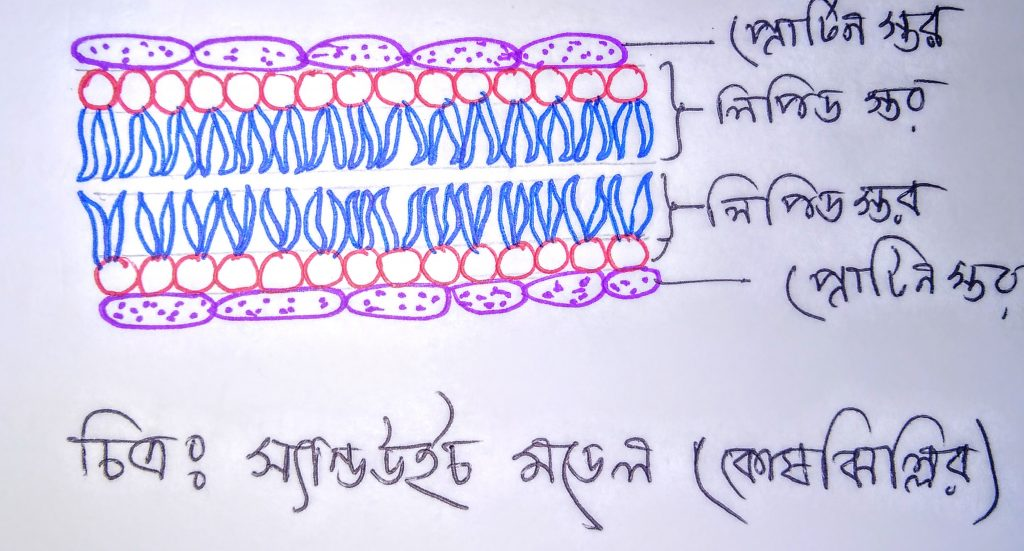 প্রোটিন স্তর
লিপিড স্তর
লিপিড স্তর
প্রোটিন স্তর
চিত্রঃ স্যান্ডউইচ মডেল (কোষঝিল্লির)